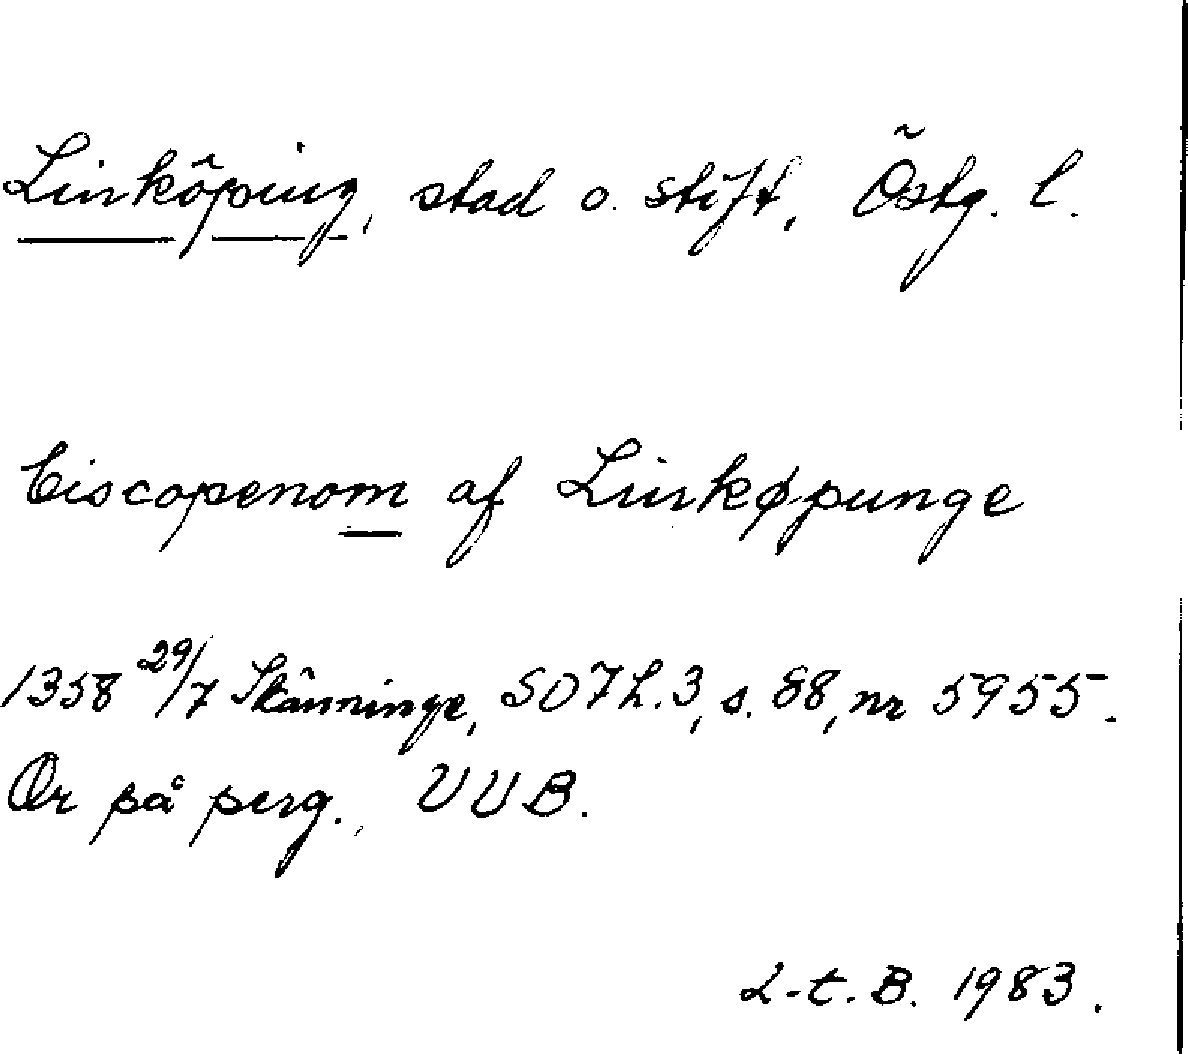 Linköping, stad o. stift, Östg. l.
biscopenom af Linkøpunge
1358 29/7 Skänninge, SD 7 h. 3, s. 88, nr 5955.
Or på perg., UUB.
L-t. B. 1983.